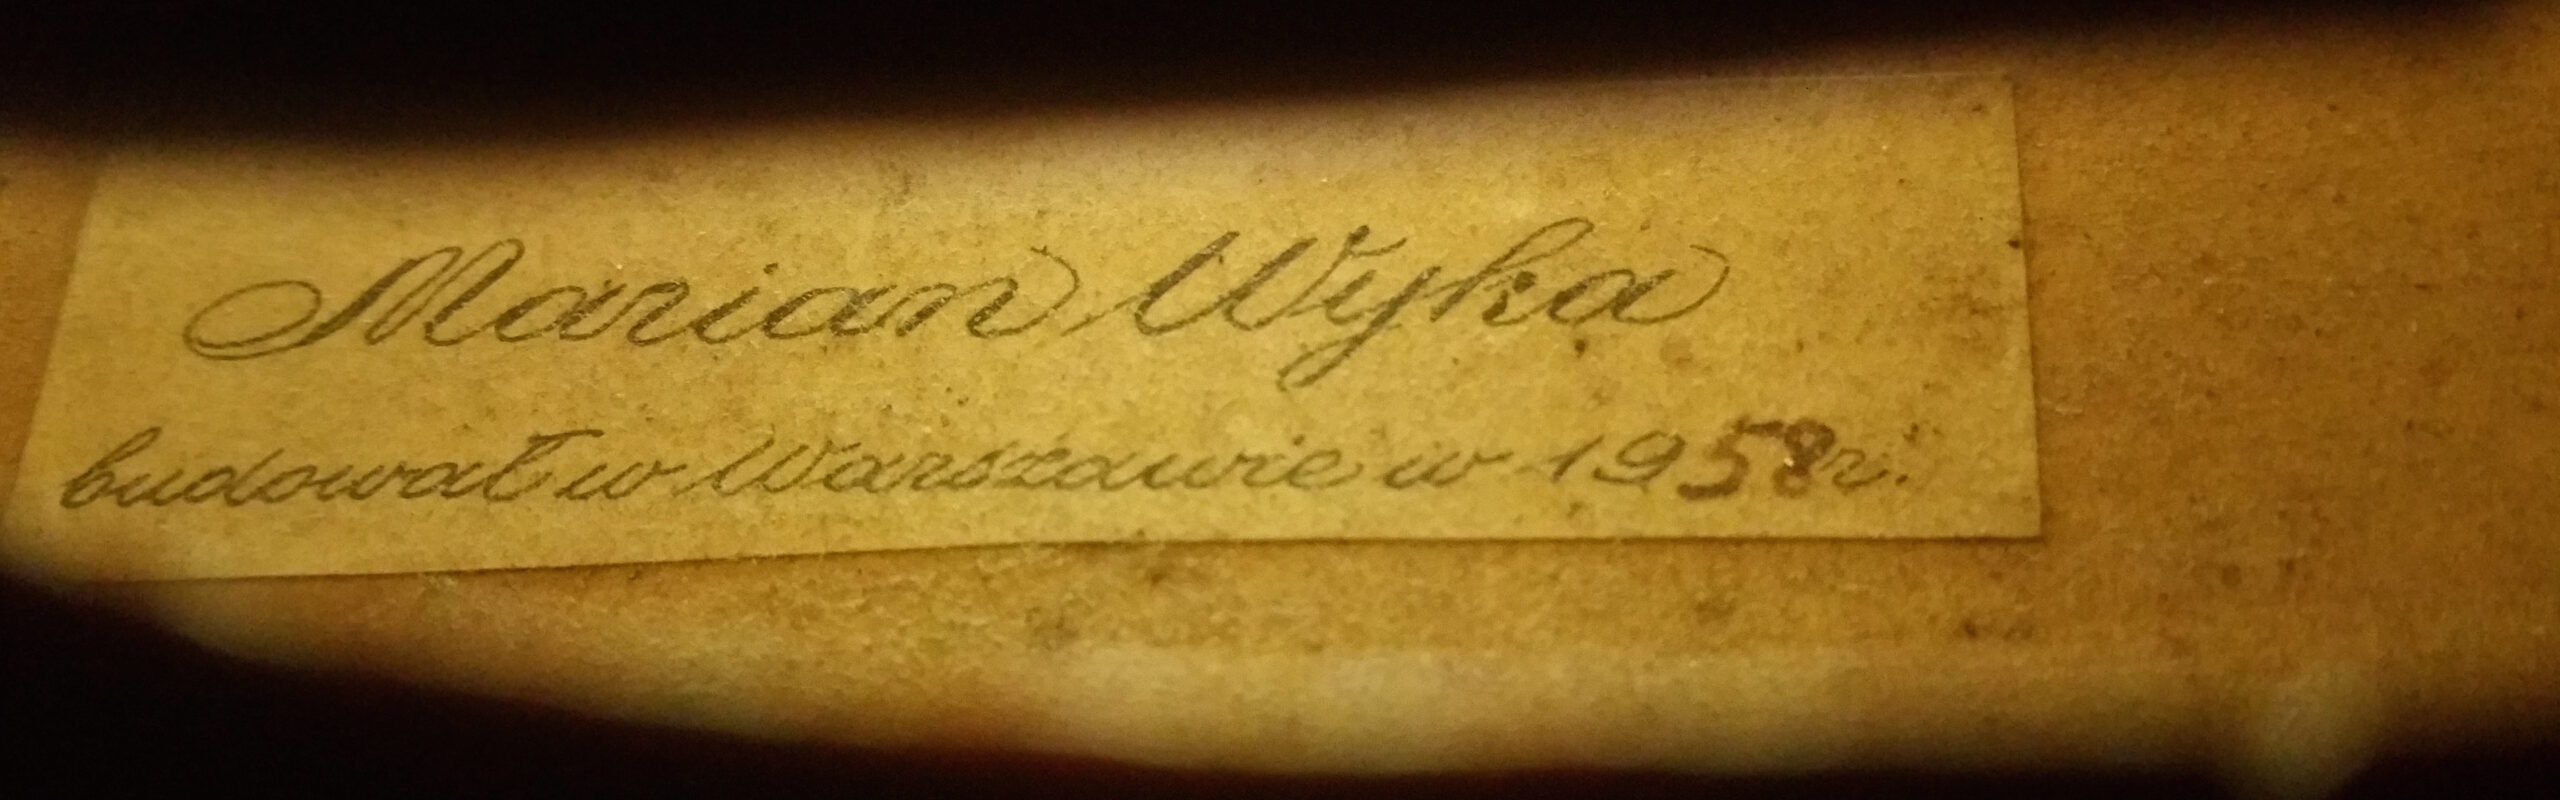 Marian Wyka
budował w Warszawie w 1958 r.